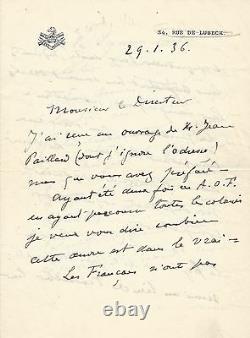 34, RUE DE LUBECK
29.1.36.
Monsieur le Directeur
J'ai un ouvrage de M. Jean
Paillard (dont j'ignore l'adresse)
mais que vous avez préfacé -
Ayant été deux fois en A.O.F.
en ayant parcouru toutes les colonies
je veux vous dire combien
cette œuvre est dans le vrai -
Les Français n'ont pas